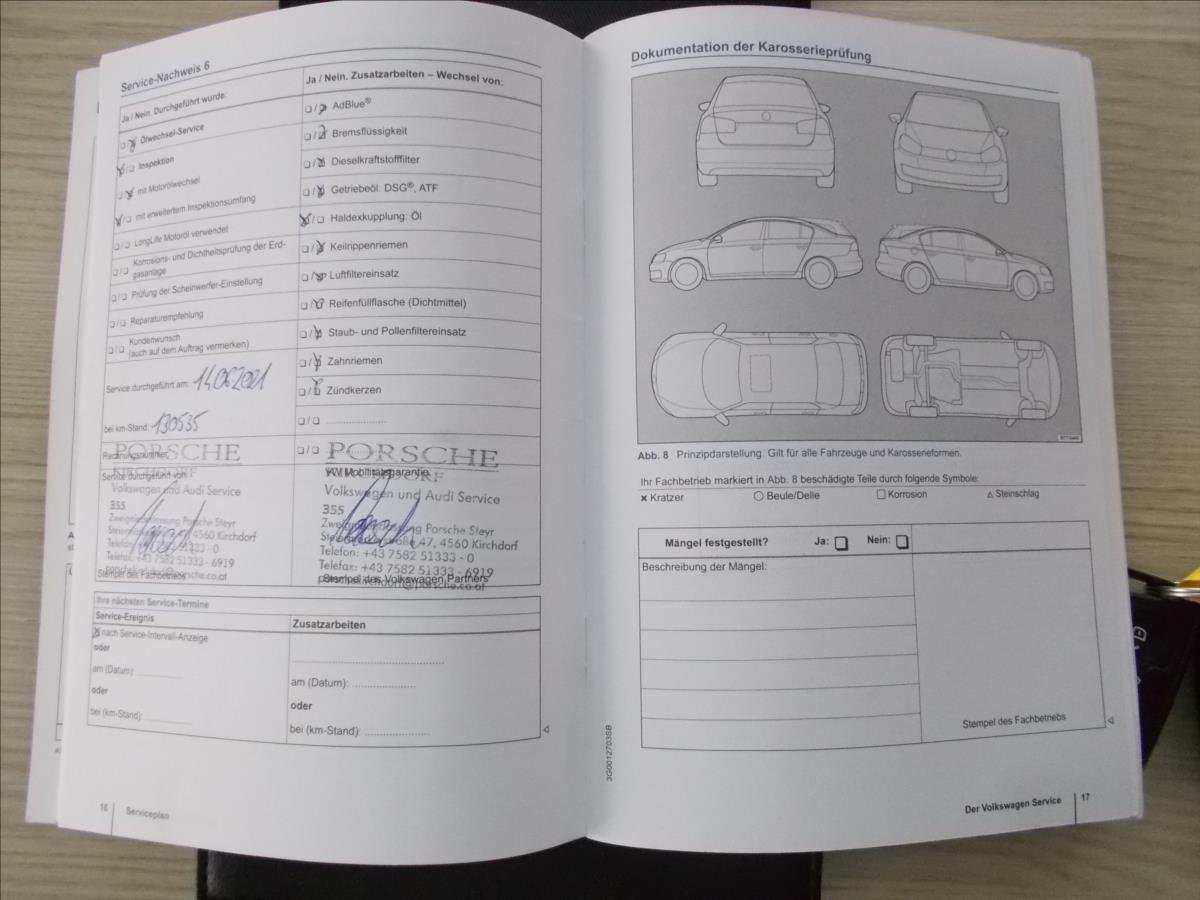 Service-Nachweis 6
Ja / Nein. Durchgeführt wurde:
Ölwechsel-Service
Inspektion
mit Motorölwechsel
mit erweitertem Inspektionsumfang
LongLife Motoröl verwendet
Korrosions- und Dichtheitsprüfung der Erd-
gasanlage
Prüfung der Scheinwerfer-Einstellung
Reparaturempfehlung
Kundenwunsch
(auch auf dem Auftrag vermerken)
Service durchgeführt am: 14.06.2021
bei km-Stand: 130535
Rechnungsnummer
PORSCHE
KIRCHDORF
Service durchgeführt von:
Volkswagen und Audi Service
355
Zweigniederlassung Porsche Steyr
4560 Kirchdorf
Telefon: +43 7582 51333 - 0
Telefax: +43 7582 51333 - 6919
Stempel des Fachbetriebs
Ja / Nein. Zusatzarbeiten – Wechsel von:
AdBlue®
Bremsflüssigkeit
Dieselkraftstofffilter
Getriebeöl: DSG®, ATF
Haldexkupplung: Öl
Keilrippenriemen
Luftfiltereinsatz
Reifenfüllflasche (Dichtmittel)
Staub- und Pollenfiltereinsatz
Zahnriemen
Zündkerzen
PORSCHE
VW Mobilitätsgarantie
Volkswagen und Audi Service
355
Porsche Steyr
47, 4560 Kirchdorf
Telefon: +43 7582 51333 - 0
Telefax: +43 7582 51333 - 6919
Stempel des Volkswagen Partners
Ihre nächsten Service-Termine
Service-Ereignis
nach Service-Intervall-Anzeige
oder
am (Datum):
oder
bei (km-Stand):
Zusatzarbeiten
am (Datum):
oder
bei (km-Stand):
16 Serviceplan
Dokumentation der Karosserieprüfung
Abb. 8 Prinzipdarstellung. Gilt für alle Fahrzeuge und Karosserieformen.
Ihr Fachbetrieb markiert in Abb. 8 beschädigte Teile durch folgende Symbole:
Kratzer Beule/Delle Korrosion Steinschlag
Mängel festgestellt? Ja: Nein:
Beschreibung der Mängel:
Stempel des Fachbetriebs
3G0012703SB
Der Volkswagen Service 17